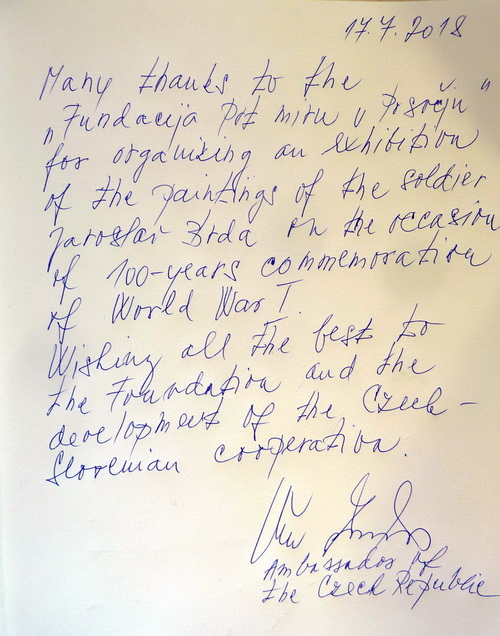 17.7.2018
Many thanks to the
"Fundacija Pot miru v Posočju"
for organizing an exhibition
of the paintings of the soldier
Jaroslav Brda on the occasion
of 100-years commemoration
of World War I.
Wishing all the best to
the Foundation and the
development of the Czech-
Slovenian cooperation.
Ambassador of
the Czech Republic